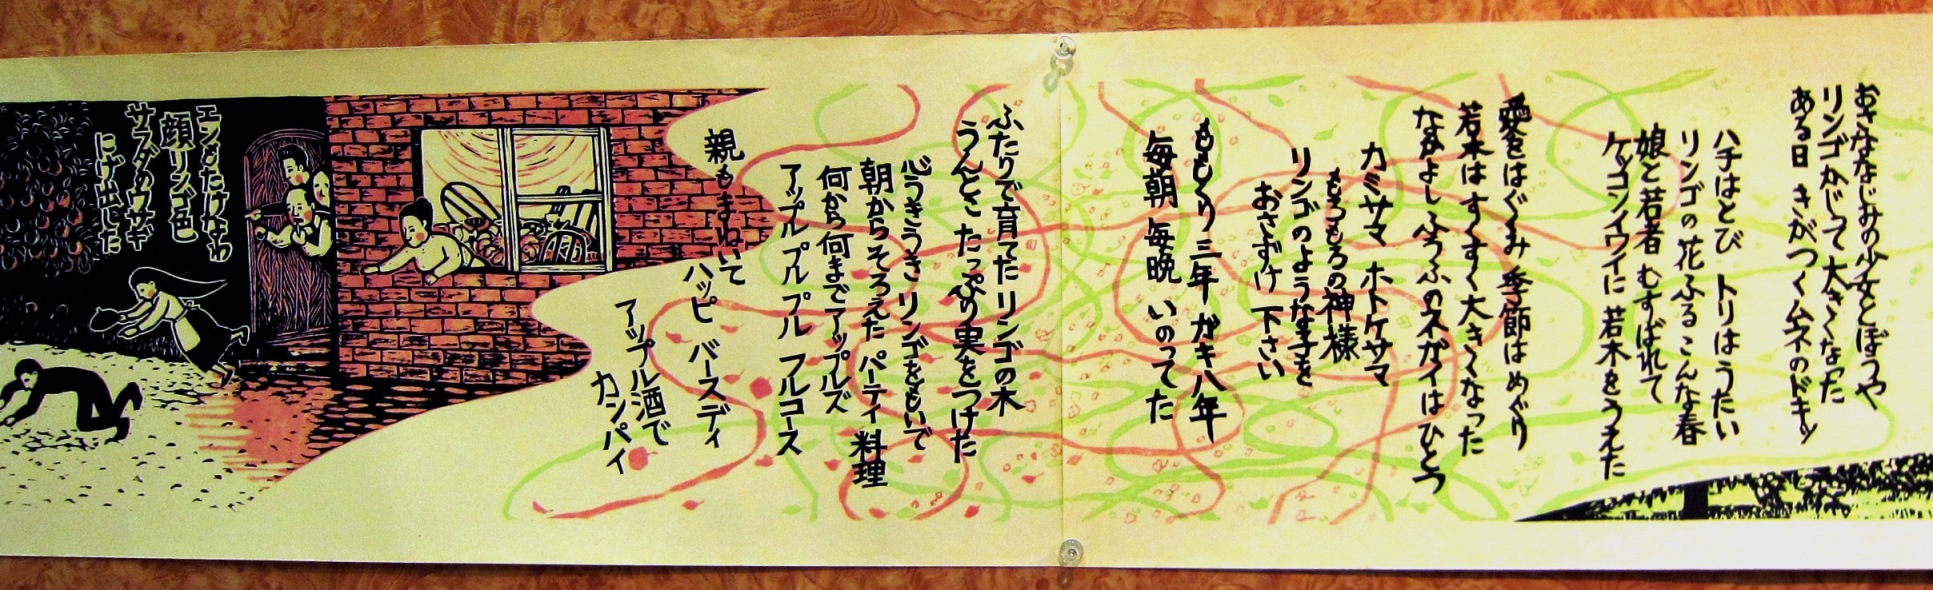 おさななじみの少女とぼうや
リンゴかじって大きくなった
ある日 きがつくムネのドキッ
ハチはとび トリはうたい
リンゴの花ふるこんな春
娘と若者 むすばれて
ケッコンイワイに 若木をうえた
愛をはぐくみ 季節はめぐり
若木は すくすく大きくなった
なかよしふうふのネガイはひとつ
カミサマ ホトケサマ
もろもろの神様
リンゴのような子を
おさずけ下さい
ももくり三年 ガキ八年
毎朝 毎晩 いのってた
ふたりで育てたリンゴの木
うんとこ たっぷり実をつけた
心うきうき リンゴをもいで
朝からそろえた パーティ料理
何から何までアップルズ
アップルプルプル フルコース
親もまねいて
ハッピ バースディ
アップル酒で
カンパイ
エンをたけなわ
顔リンゴ色
サスダのウサギ
にげ出した